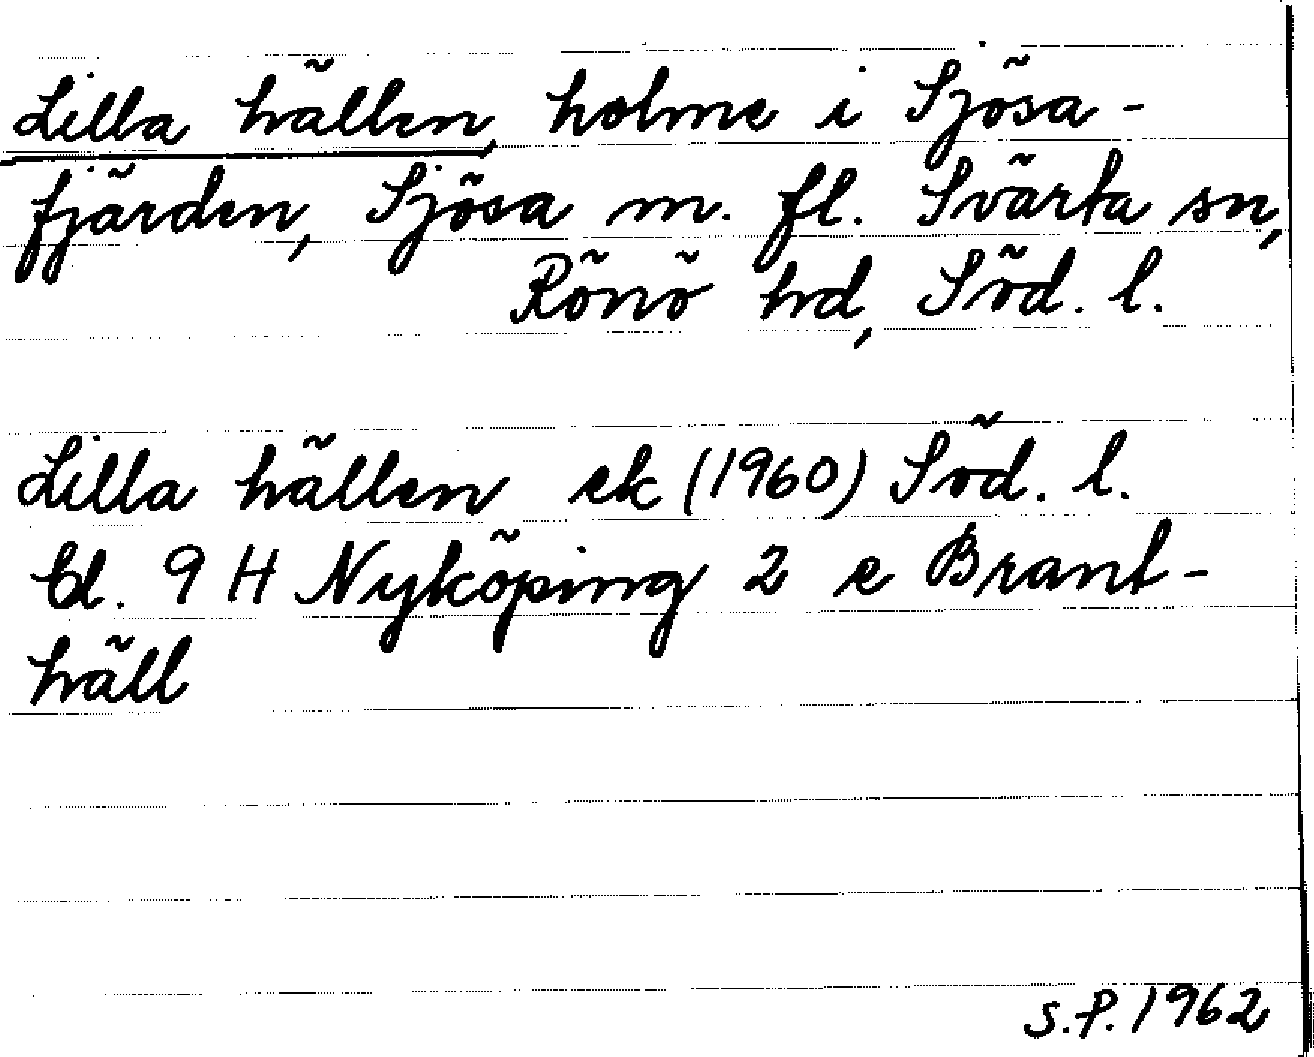 Lilla hällen, holme i Sjösa-
fjärden, Sjösa m. fl. Svärta sn,
Rönö hd, Söd. l.
Lilla hällen ek (1960) Söd. l.
bl. 9 H Nyköping 2 e Brant-
häll
S.P. 1962